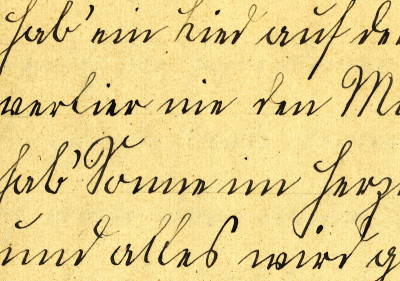 hab' ein Lied auf de
verlier nie den M
hab' Sonne im Herz
und alles wird g